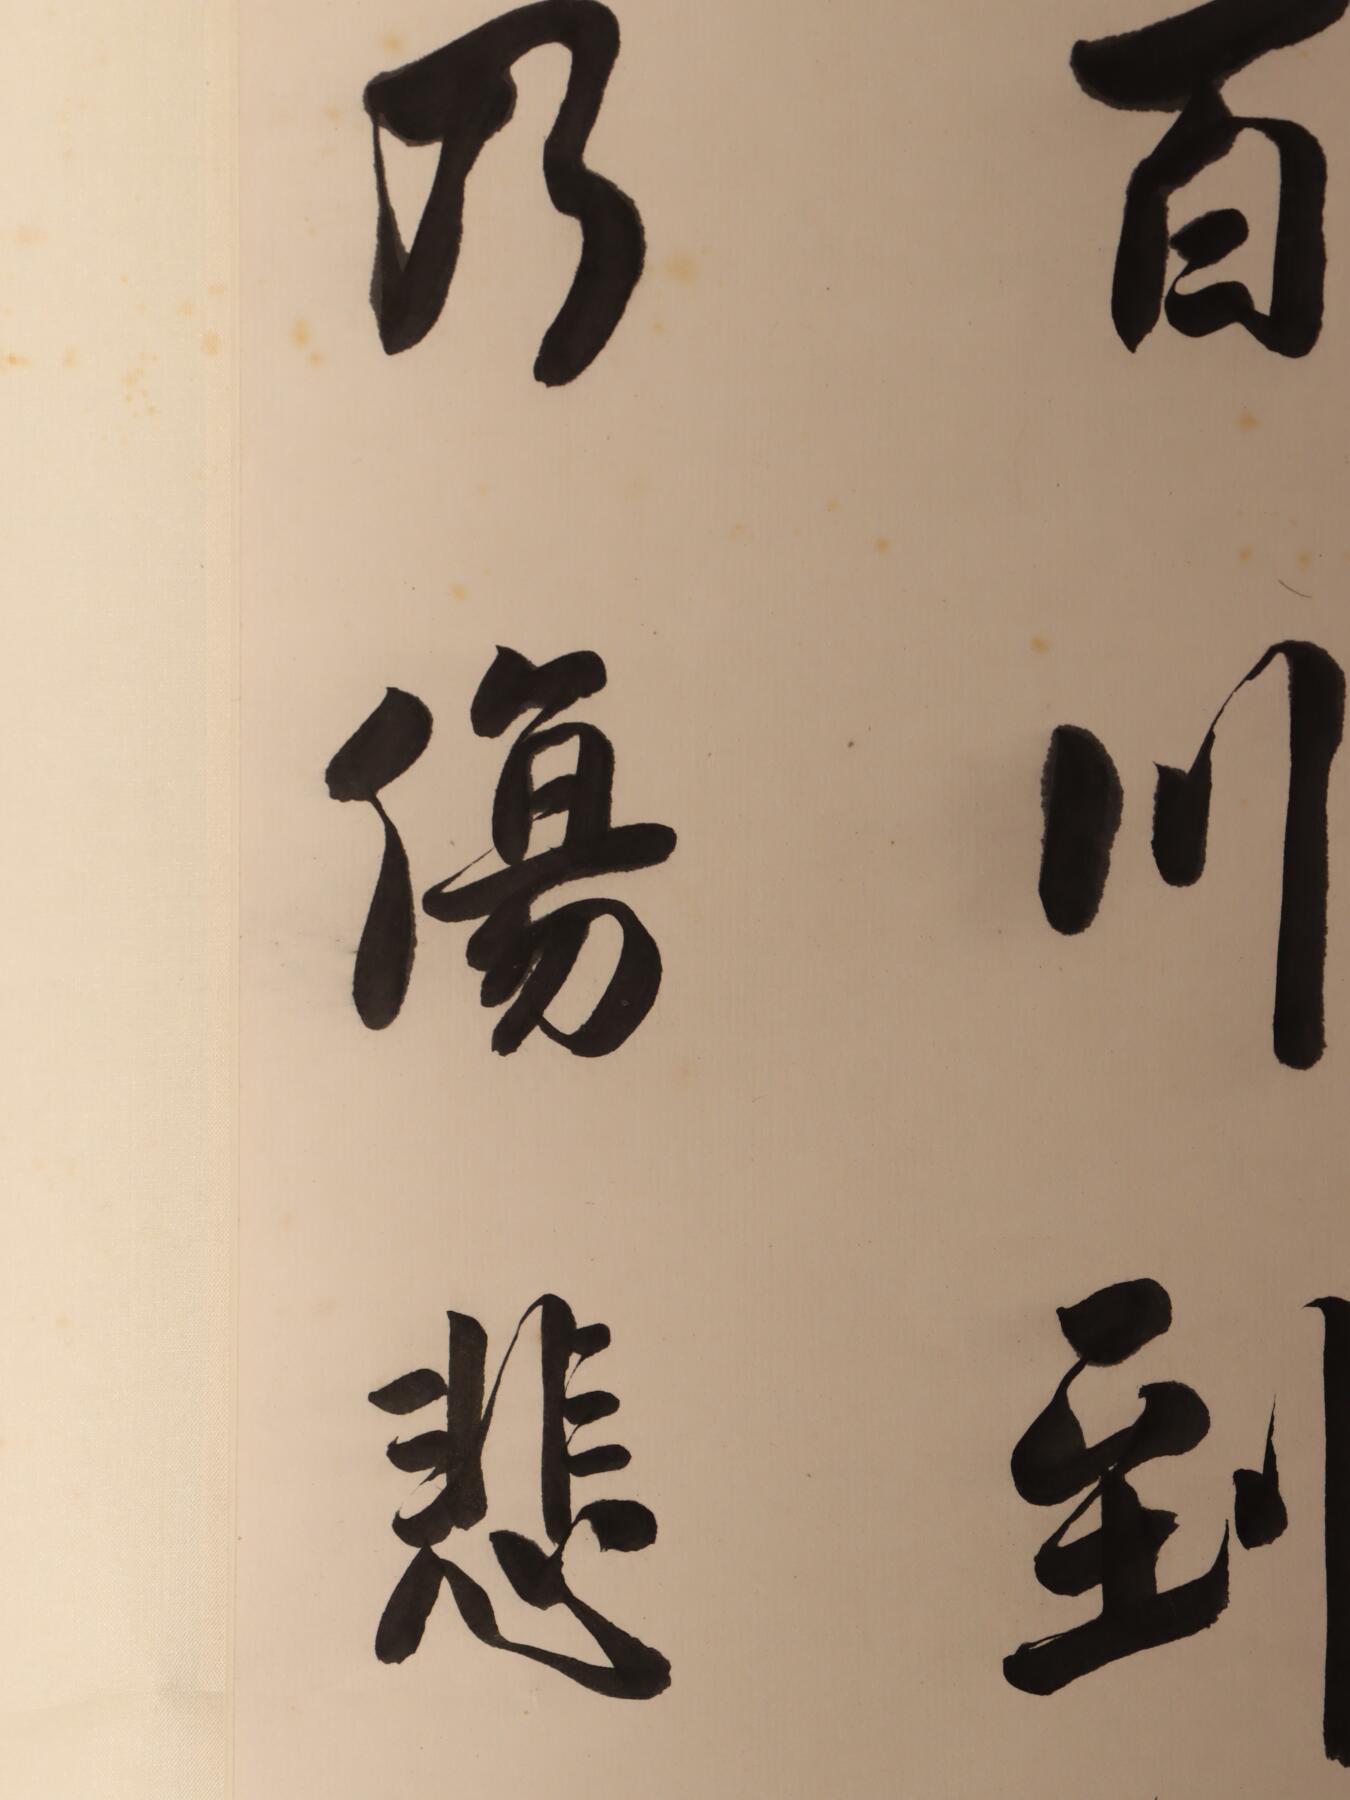 百川到
乃傷悲